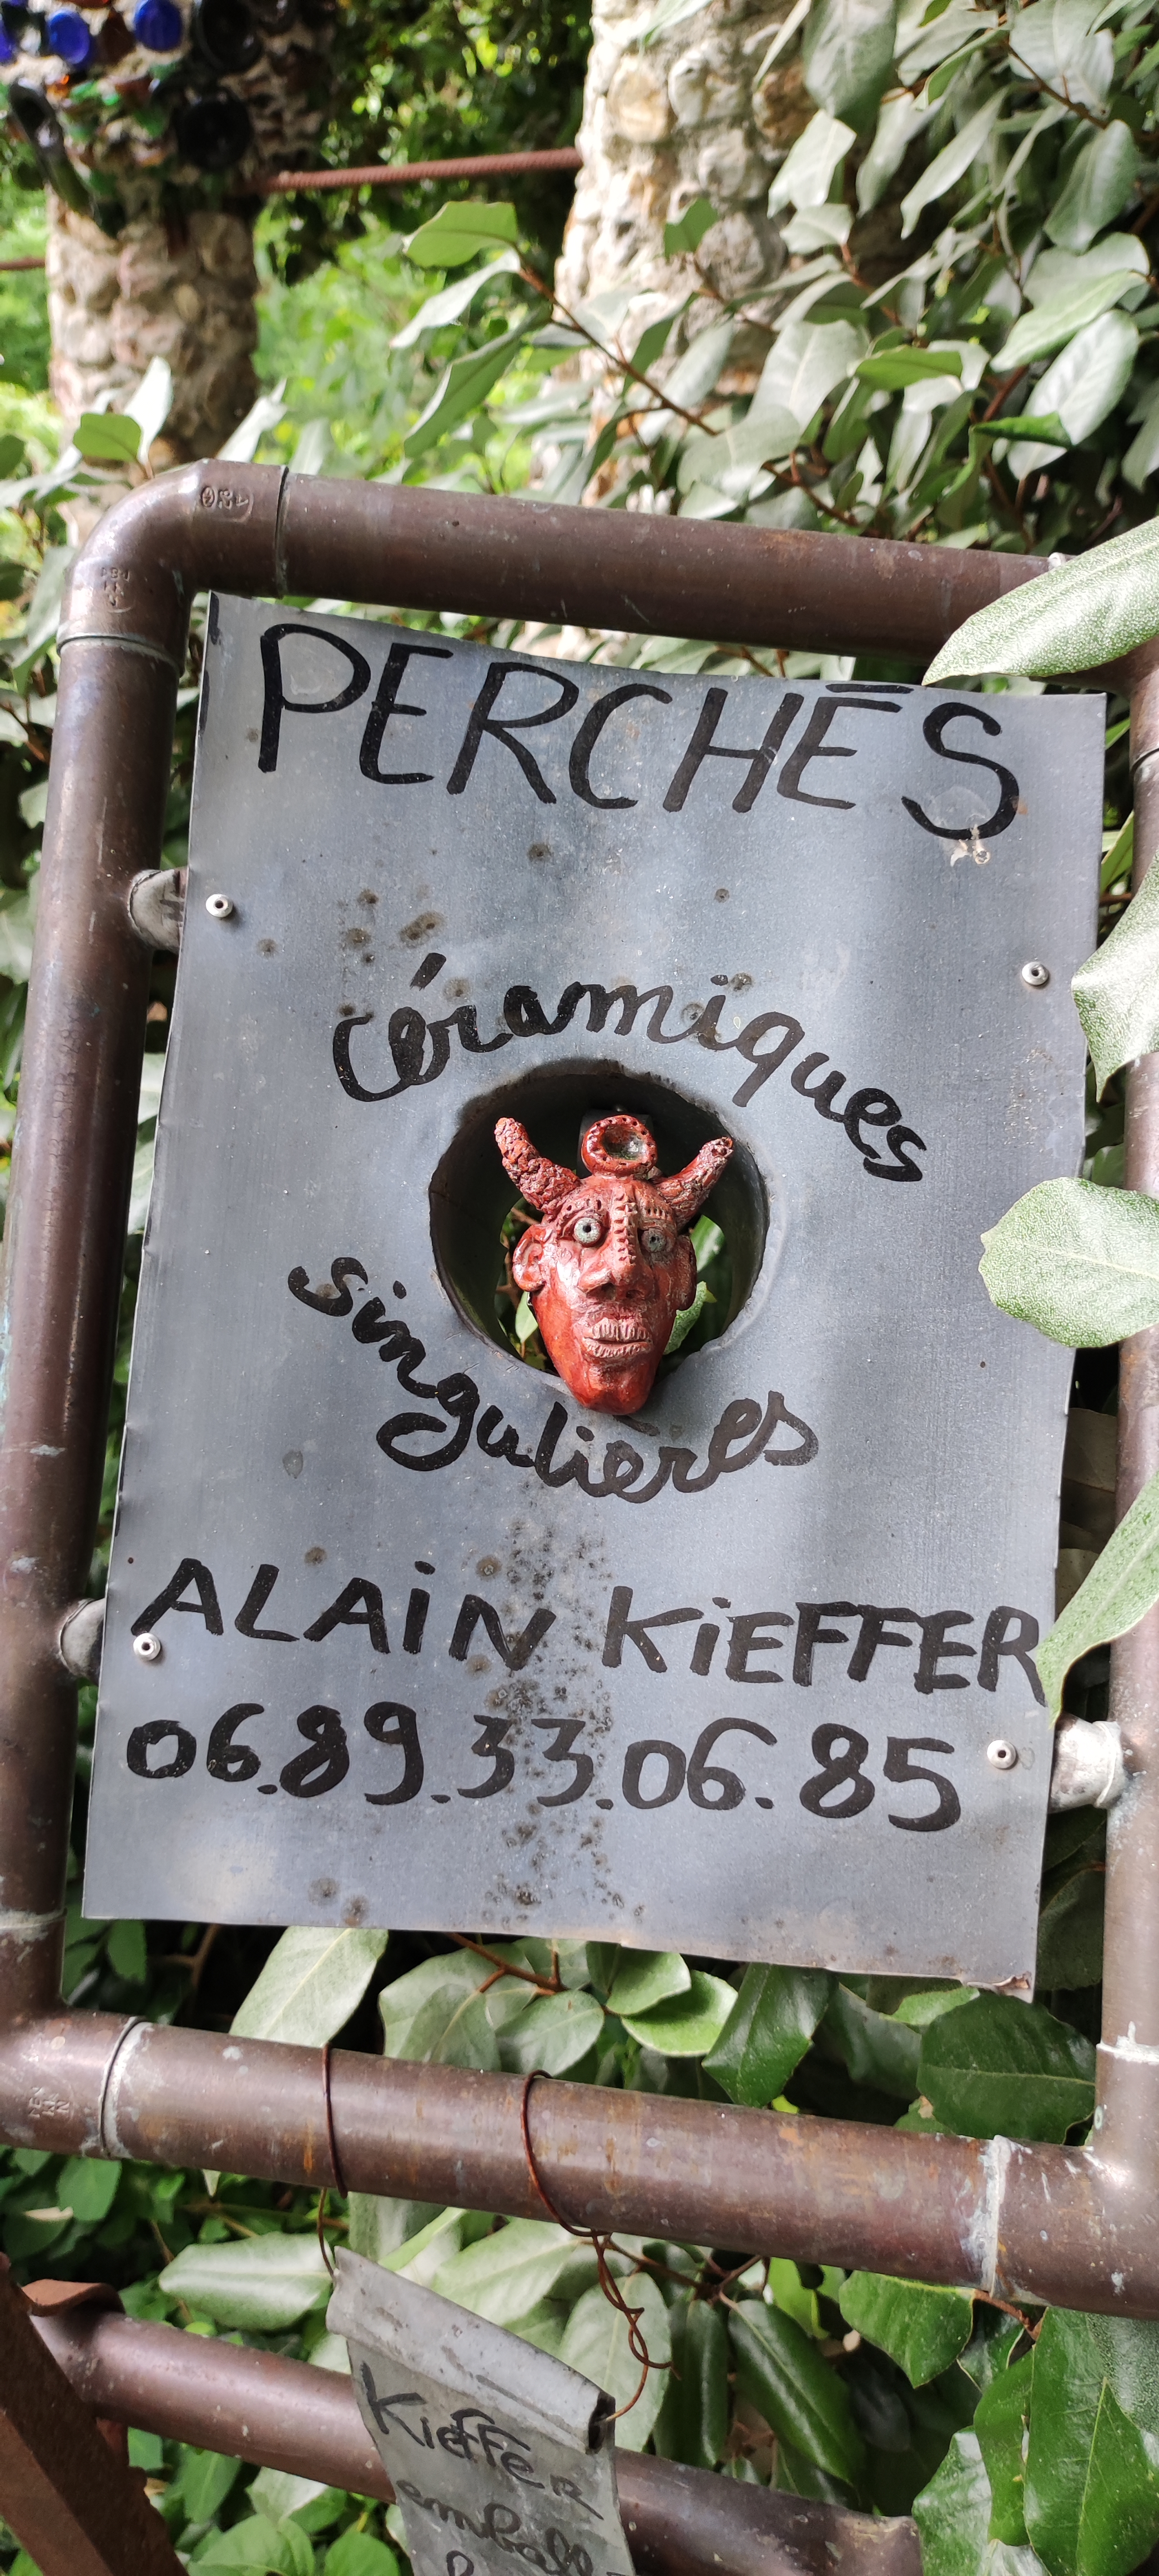 PERCHÉS
céramiques
singulières
ALAIN KIEFFER
06.89.33.06.85
KieFFER